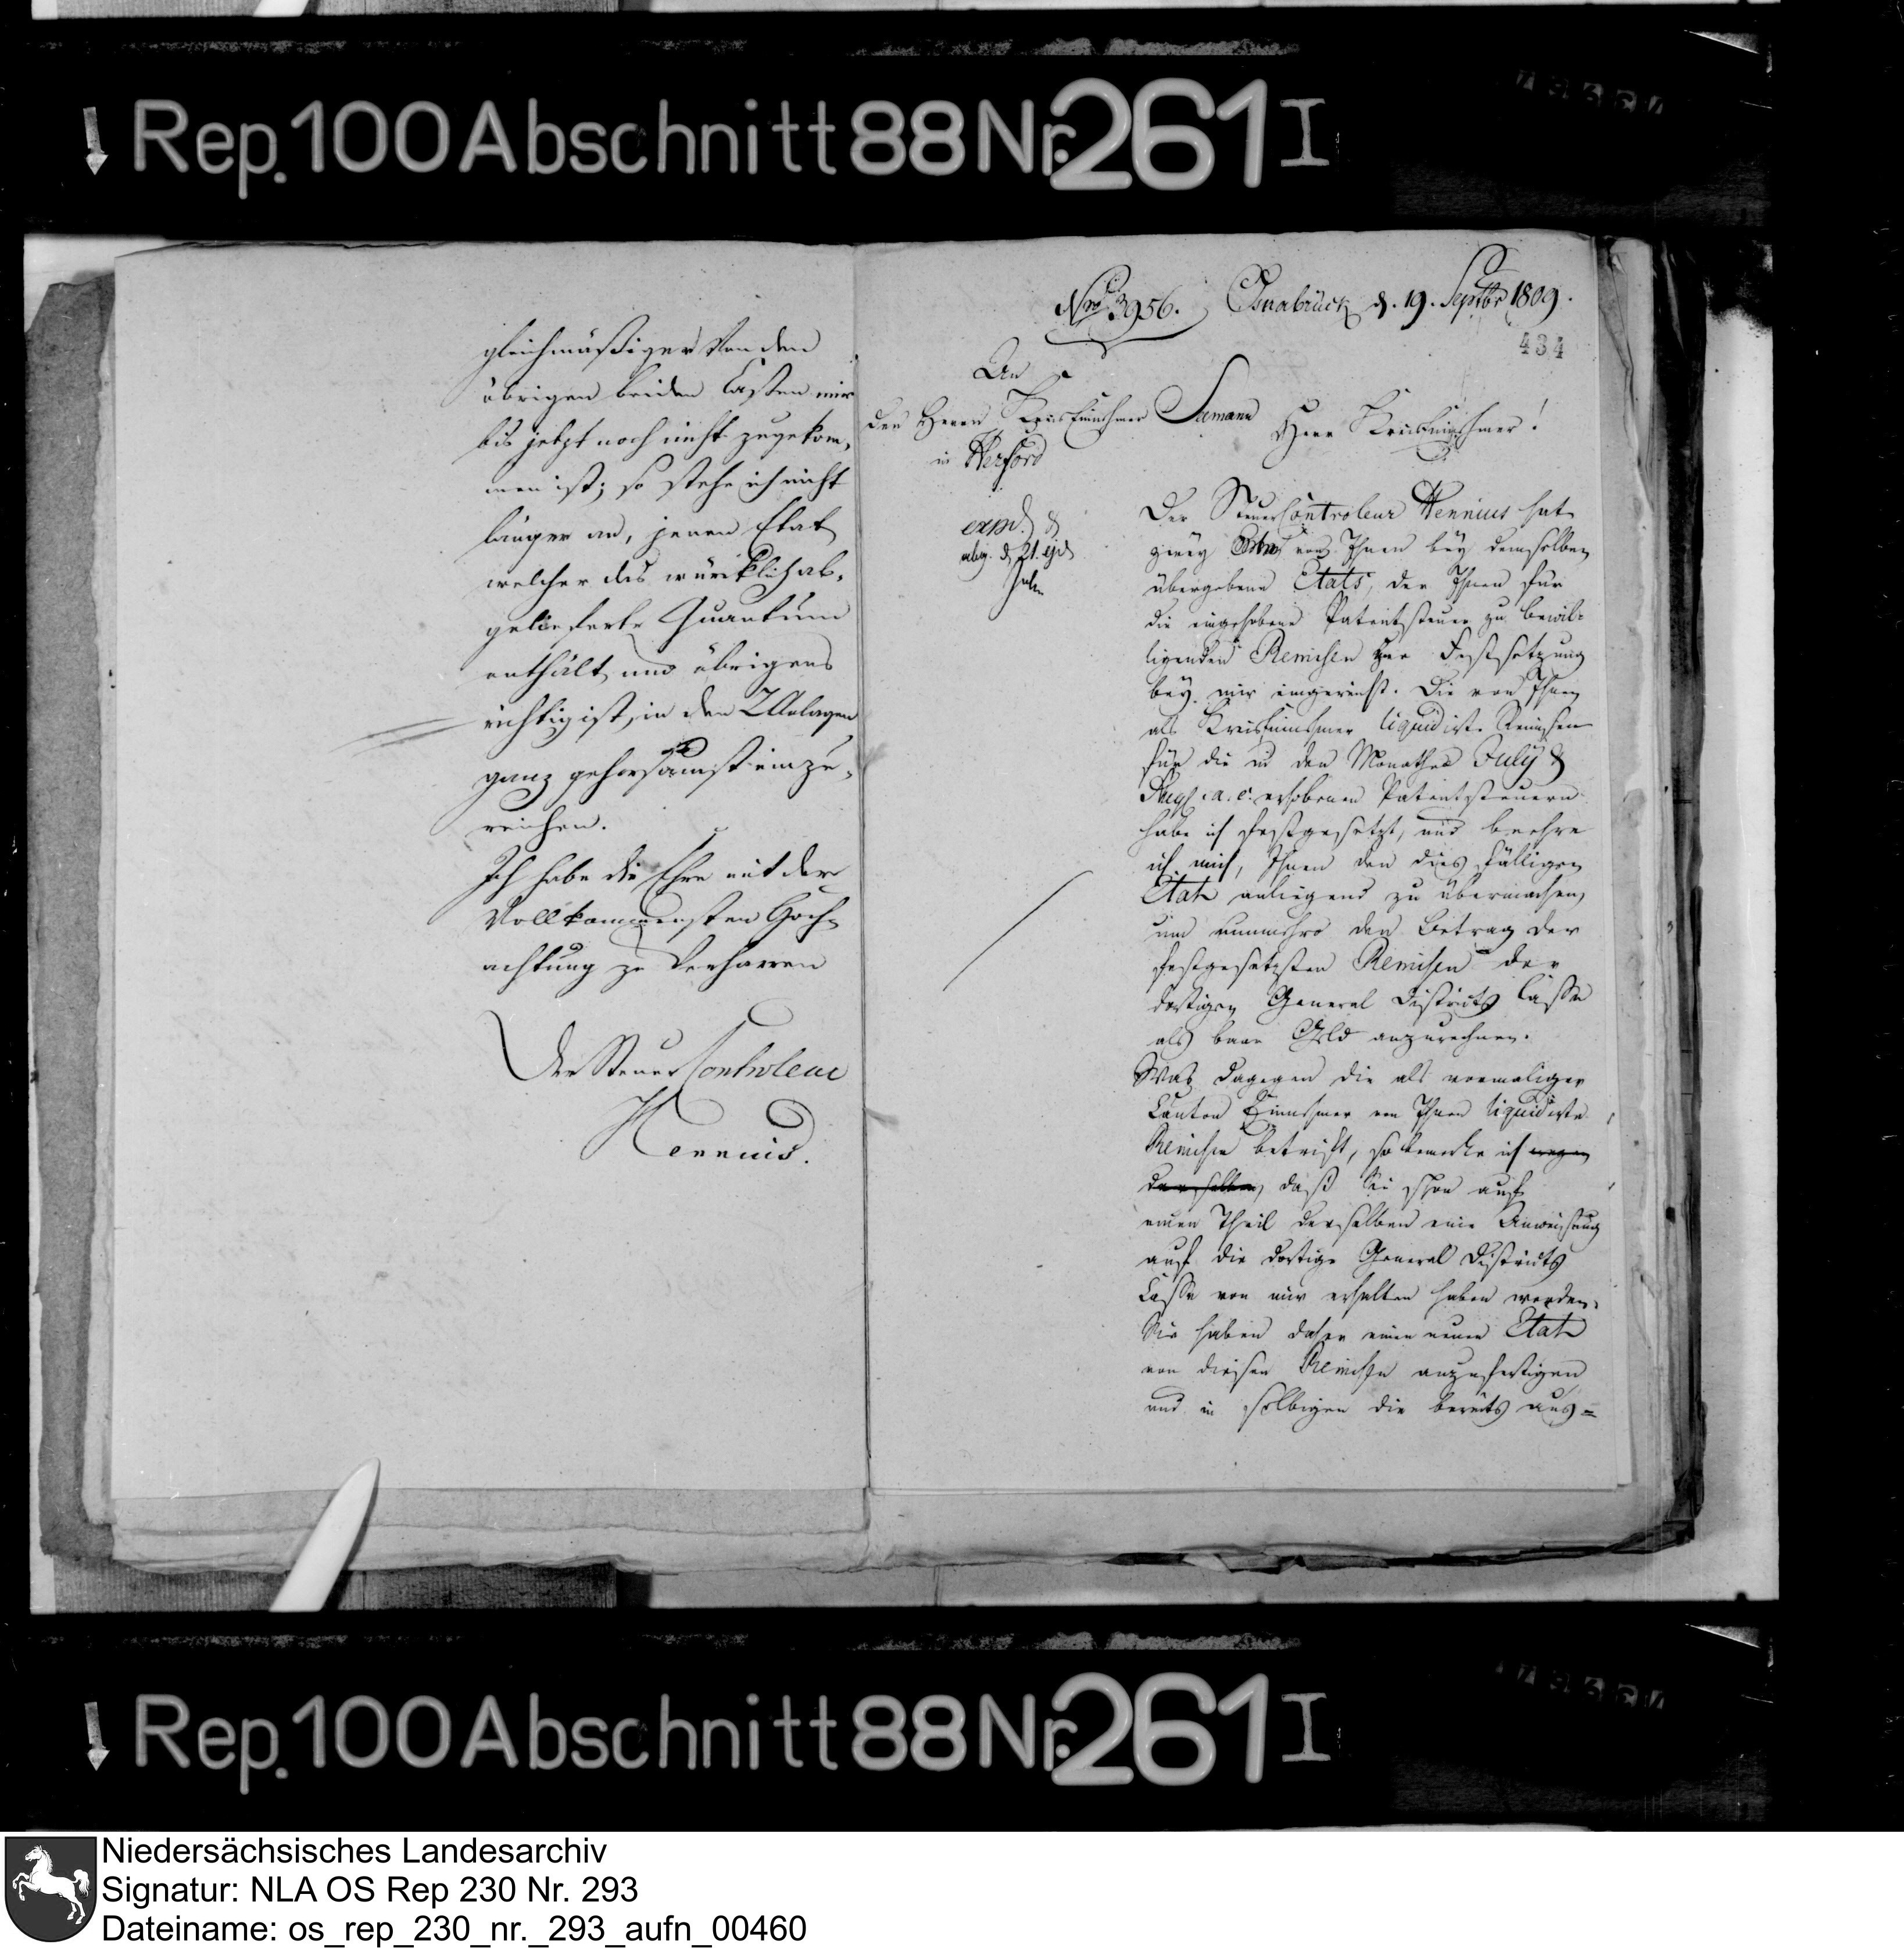 Rep. 100 Abschnitt 88 Nr. 261 I
gleichmäßiger von den
übrigen beiden Cassen mir
bis jetzt noch nicht zugekom-
men ist; so stehe ich nicht
länger an, jenen Etat
welcher das würcklich ab-
gelieferte Quantum
enthält und übrigens
richtig ist, in den 2 Anlagen
ganz gehorsamst einzu-
reichen.
Ich habe die Ehre mit der
Vollkommensten Hoch-
achtung zu verharren
Der Steuer Controleur
Hennius.
Nro 3956. Osnabrück d. 19. Septbr 1809.
434
An
den Herrn Kreiseinnehmer Semann
in Herford
expd. &
abg. d. 21. ejd
Herr Kreiseinnehmer!
Der Steuer Controleur Hennius hat
zwey von Ihnen bey demselben
übergebene Etats, der Ihnen für
die eingehobene Patentsteuer zu bewil-
ligenden Remisen zur Festsetzung
bey mir eingereicht. Die von Ihnen
als Kreiseinnehmer liquidirte Remisen
für die in den Monathen July &
Aug. a. c. erhobenen Patentsteuern
habe ich festgesetzt, und beehre
ich mich, Ihnen den dies fälligen
Etat anliegend zu übermachen,
um nunmehro den Betrag der
festgesetzten Remisen der
dortigen General Districts Casse
als baar Geld anzurechnen.
Was dagegen die als vormaliger
Canton Einnehmer von Ihnen liquidirte
Remisen betrift, so bemerke ich wegen
derselben, daß Sie schon auf
einen Theil derselben eine Anweisung
auf die dortige General Districts
Casse von mir erhalten haben werden.
Sie haben daher einen neuen Etat
von diesen Remisen anzufertigen
und in selbigen die bereits aus=
Rep. 100 Abschnitt 88 Nr. 261 I
Niedersächsisches Landesarchiv
Signatur: NLA OS Rep 230 Nr. 293
Dateiname: os_rep_230_nr._293_aufn_00460